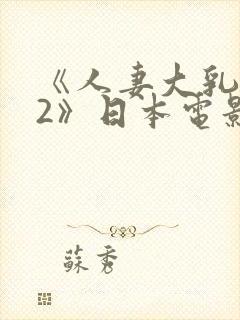 《人妻大乳
2》日本电影
蘇秀